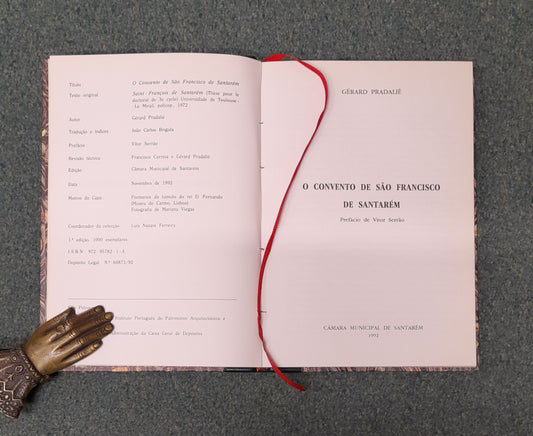 Título O Convento de São Francisco de Santarém
Texto original Saint François de Santarém (Thèse pour le
doctorat de 3e cycle) Universidade de Toulouse -
Le Mirail, policop., 1972
Autor Gérard Pradalié
Tradução e índices João Carlos Brigola
Prefácio Vítor Serrão
Revisão técnica Francisco Correia e Gérard Pradalié
Edição Câmara Municipal de Santarém
Data Novembro de 1992
Motivo da Capa Pormenor do túmulo do rei D. Fernando
(Museu do Carmo, Lisboa)
Fotografia de Mariana Viegas
Coordenador da colecção Luís Nazaré Ferreira
1.ª edição, 1000 exemplares
I.S.B.N. 972-95782-1-4
Depósito Legal N.º 60873/92
Instituto Português do Património Arquitectónico e
Administração da Caixa Geral de Depósitos
GÉRARD PRADALIÉ
O CONVENTO DE SÃO FRANCISCO
DE SANTARÉM
Prefácio de Vítor Serrão
CÂMARA MUNICIPAL DE SANTARÉM
1992